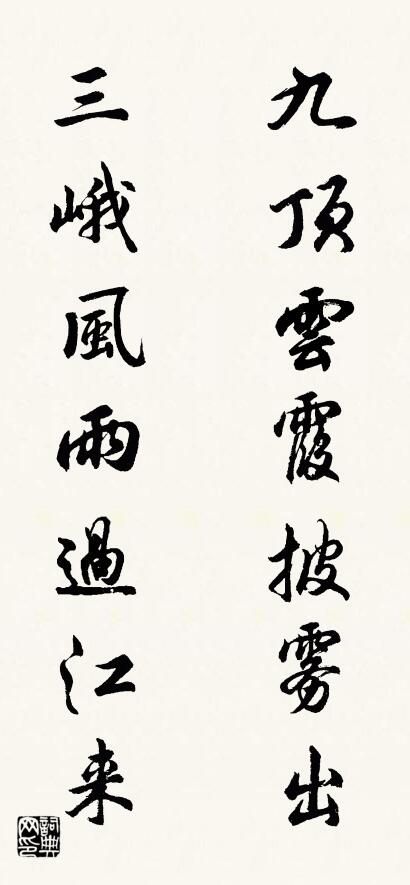 九顶雲霞披雾出
三峨風雨過江来
詞典网印